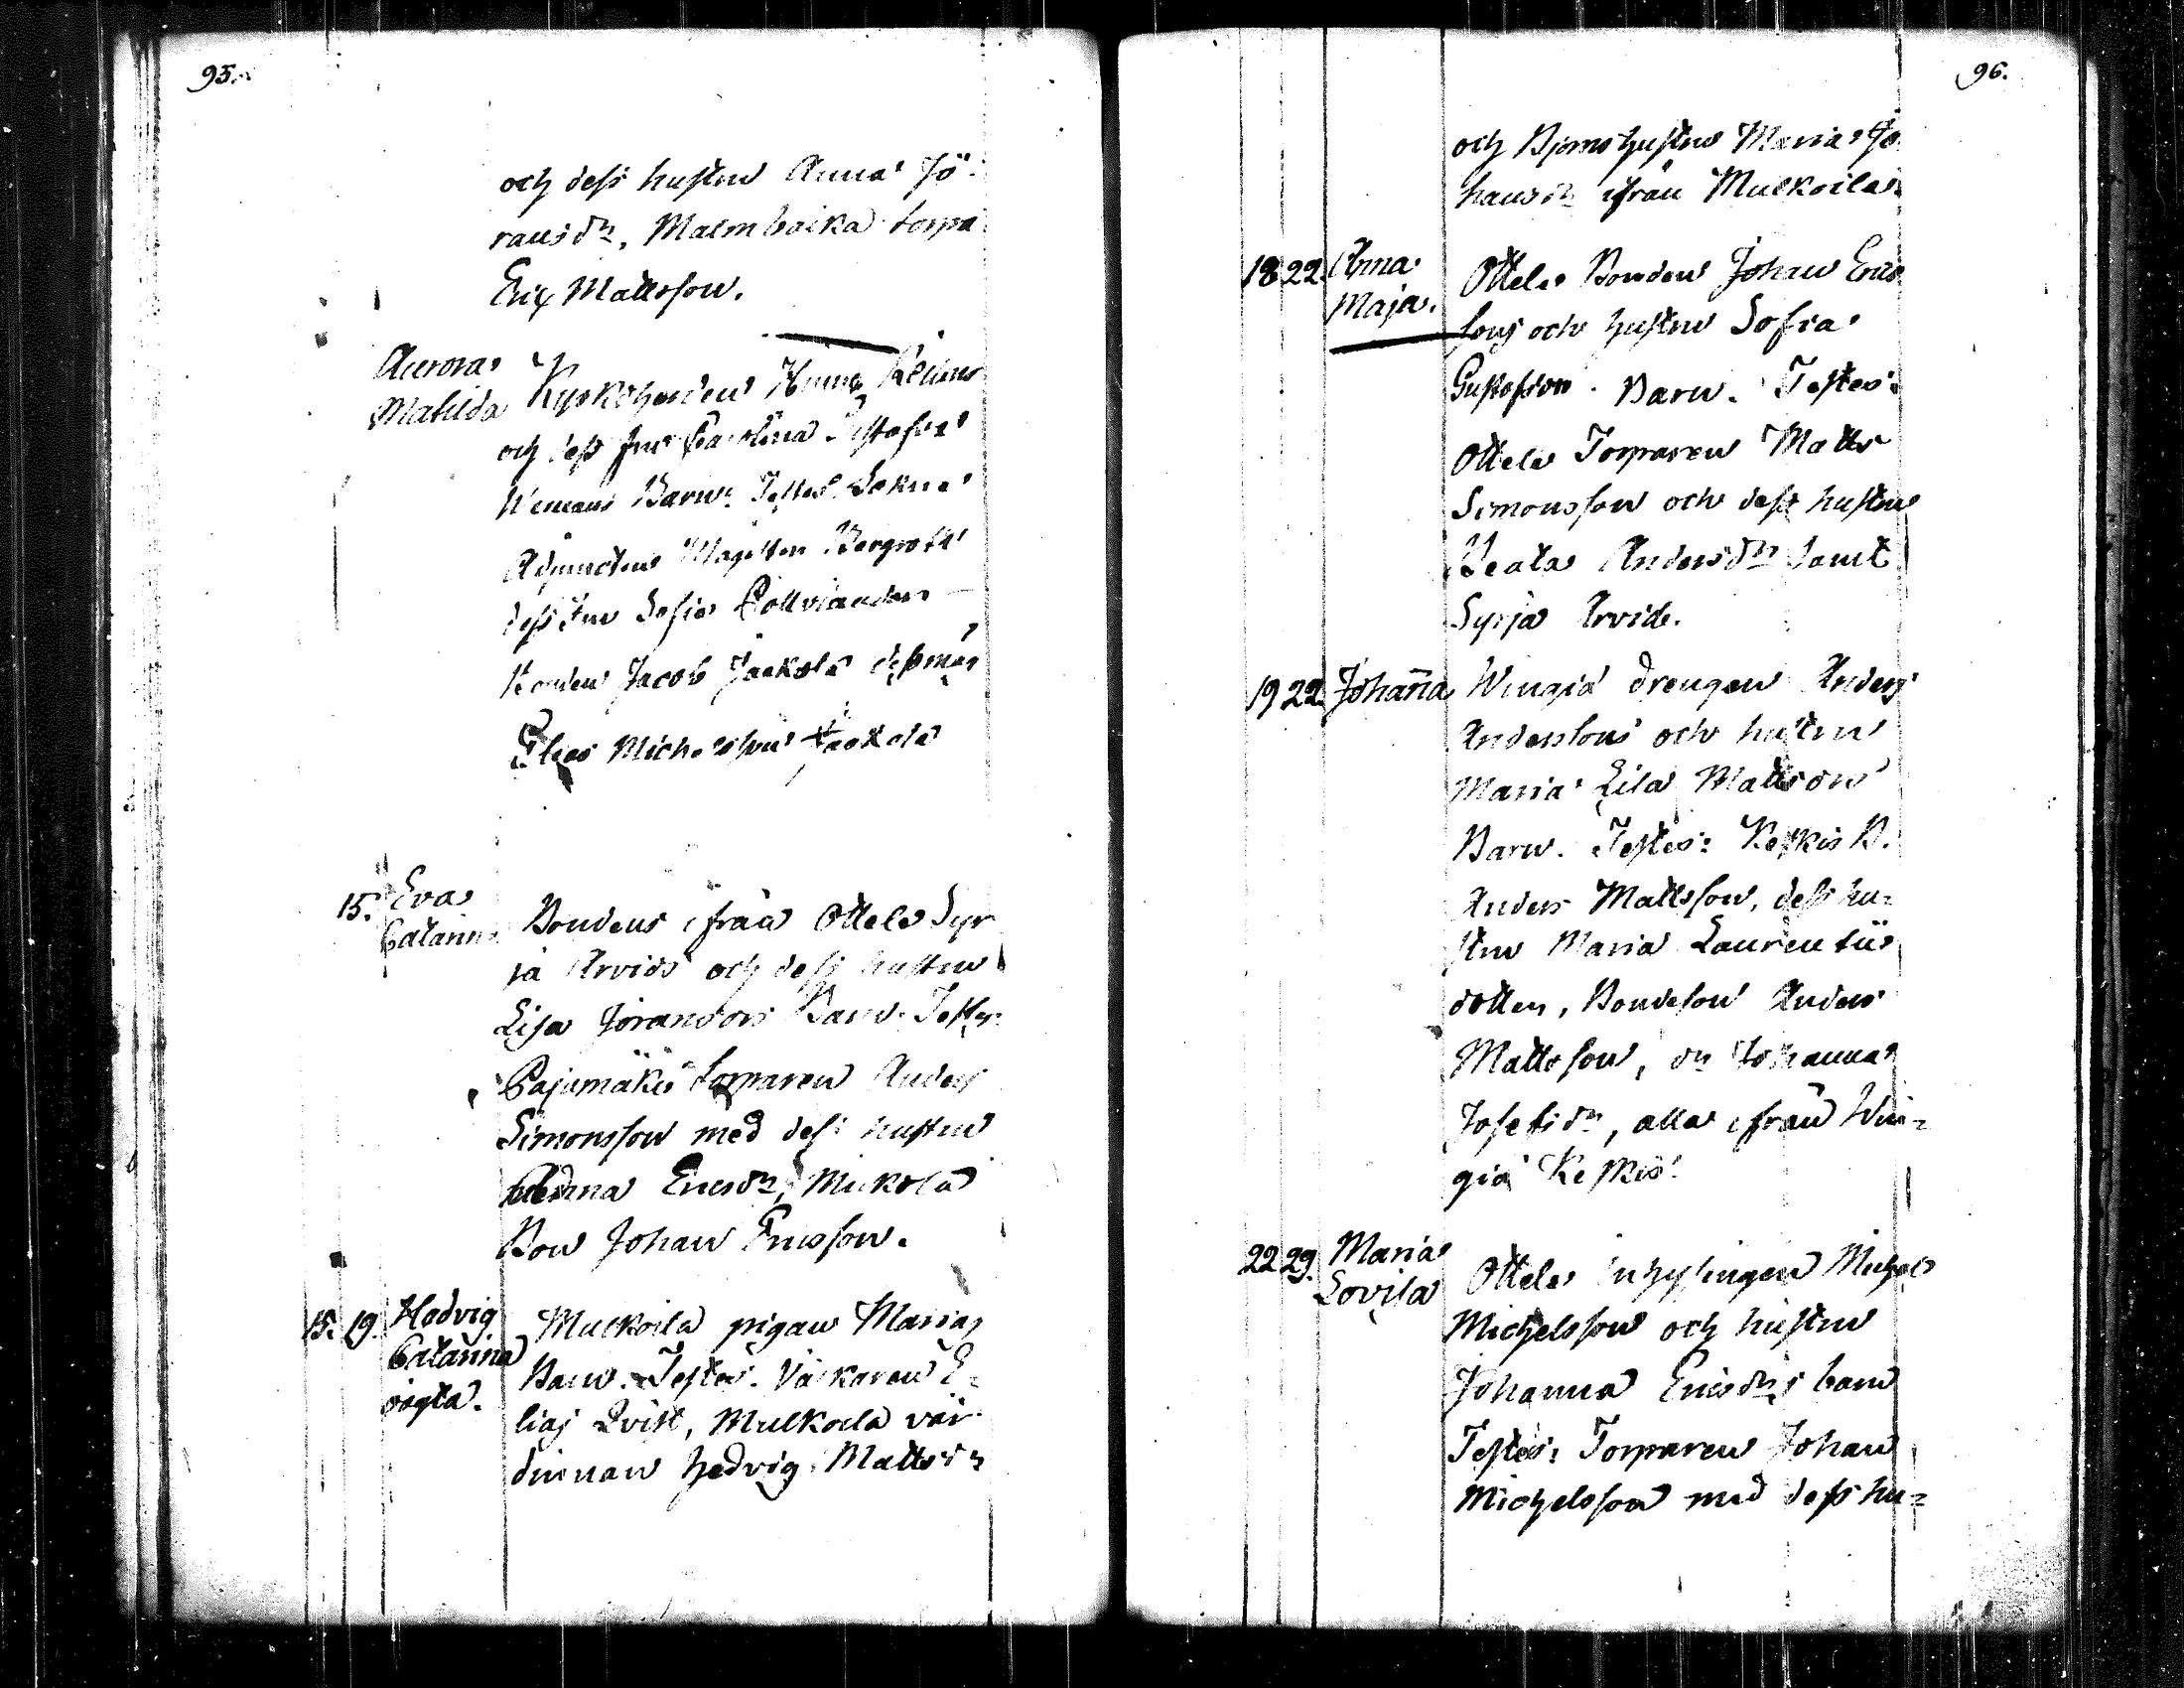 95.
och dess hustru Anna Jö-
ransdr, Malmboika torpa
Eric Mattsson.
Aurora
Matilda
Kyrkoherden
och dess fru Carolina Gustafva
Barn. Testes. Sokne
Adjuncten Magister Bergroth
dess fru Sofia Pollviander
Bonden Jacob Jaakola dess måg
Elias Michelsson Jaakola
15. Eva
Catarina
Bondens ifrån Ottela Syr
jä Arvids och dess hustru
Lisa Jörandors Barn. Testes.
Pajumäki torparen Anders
Simonsson med dess hustru
Ericsdr, Mickola
Bon Johan Ericsson.
15. 19. Hedvig
Catarina
oägta.
Mulkoila pigan Marias
Barn. Testes. Väfkaren E-
lias Qvist, Mulkoila vär-
dinnan Hedvig Mattsdr
96.
och hustru Maria Jo
hansdr ifrån Mulkoila
18 22. Anna
Maja.
Ottela Bonden Johan Erics
sons och hustru Sofia
Gustafsdors Barn. Testes:
Ottela Torparen Matts
Simonsson och dess hustru
Beata Andersdr samt
Syrjä Arvid.
19 22. Johanna
Wingiä drengen Anders
Anderssons och hustru
Maria Lisa Mattsdors
Barn. Testes: Keskis B.
Anders Mattsson, dess hu-
stru Maria Laurentii
dotter, Bondeson Anders
Mattsson, dr Johanna
Josefsdr, alla ifrån Win-
giä Keskis.
22 29. Maria
Lovisa
Ottela inhysingen Michel
Michelsson och hustru
Johanna Ericsdrs barn
Testes: Torparen Johan
Michelsson med dess hu-